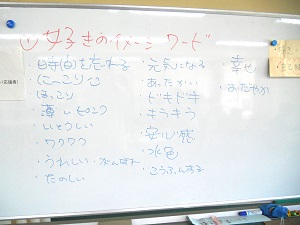 ① 好きのイメージ ワード
・時(間)を忘れる
・にっこり
・ほっこり
・薄いピンク
・いとうしい
・ワクワク
・うれしい
・たのしい
・元気になる
・あたたかい
・ドキドキ
・キラキラ
・安心感
・水色
・こうふんする
・幸せ
・おだやか